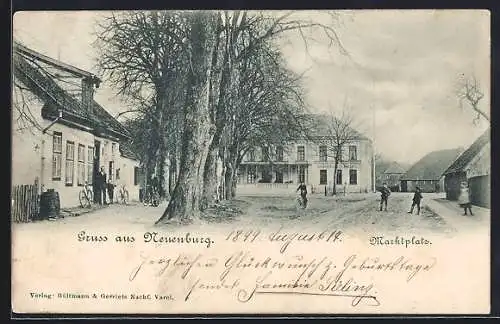 Gruss aus Neuenburg. 1899 August 12.
Marktplatz.
Herzlichen Glückwunsch z. Geburtstage
sendet Familie
Verlag: Bültmann & Gerriets Nachf. Varel.